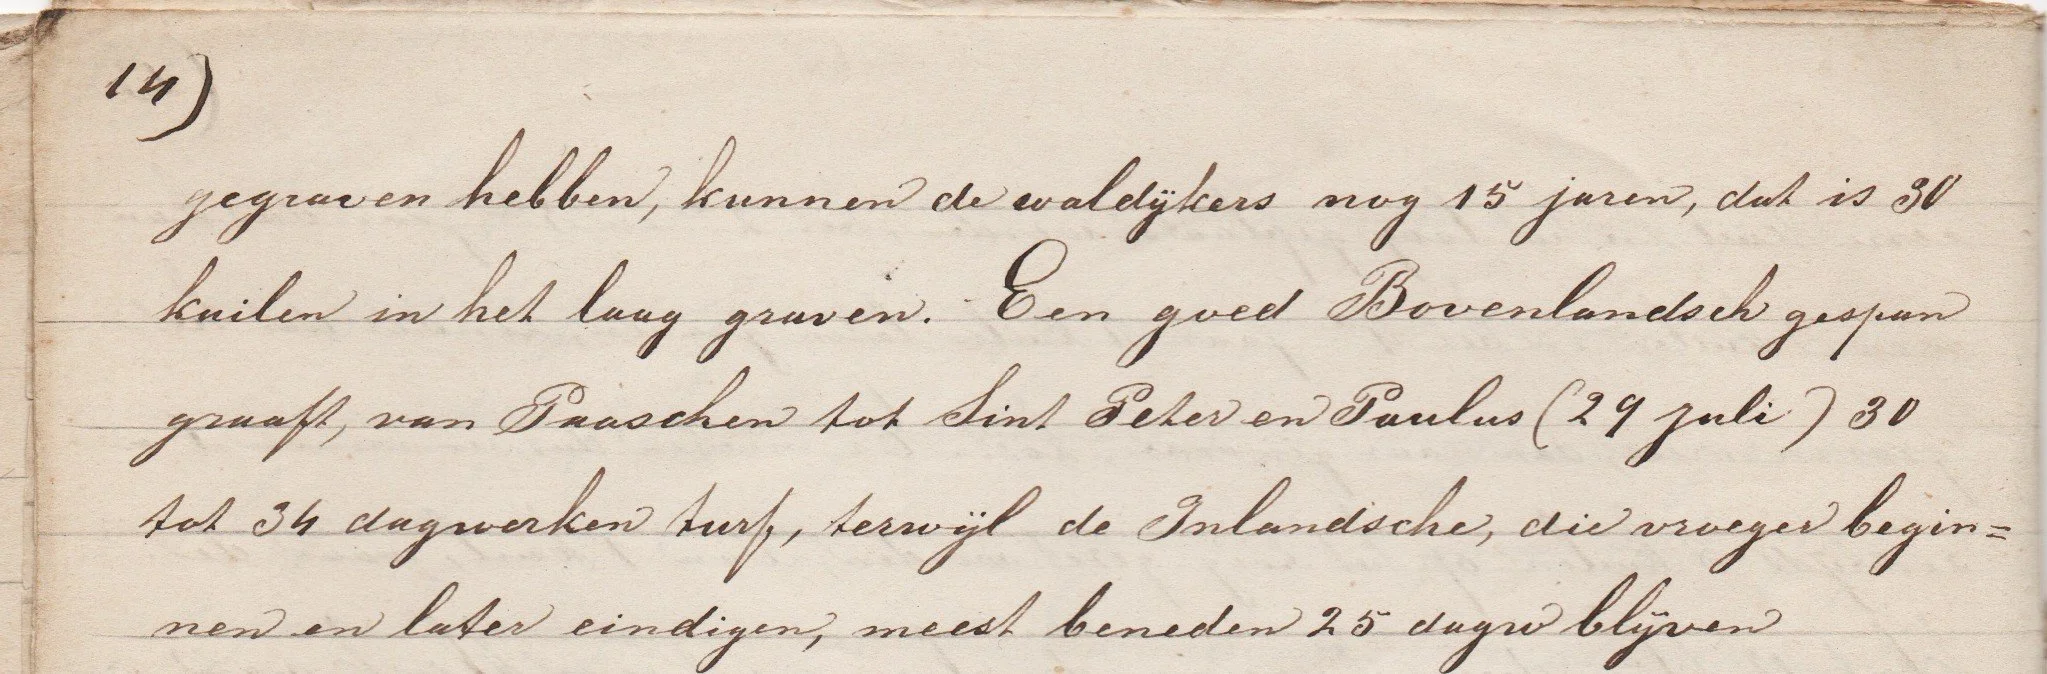 14)
gegraven hebben, kunnen de waldijkers nog 15 jaren, dat is 30
kuilen in het laag graven. Een goed Bovenlandsch gespan
graaft, van Paaschen tot Sint Peter en Paulus (29 juli) 30
tot 34 dagwerken turf, terwijl de Inlandsche, die vroeger begin=
nen en later eindigen, meest beneden 25 dagw blijven